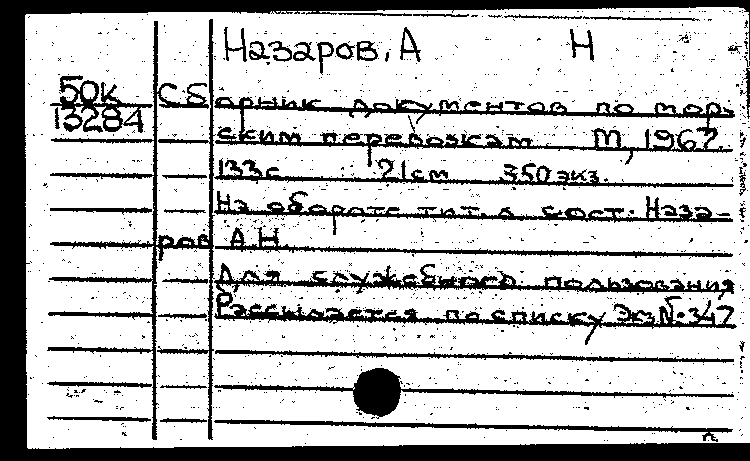 Назаров, А Н
50к Сборник документов по мор-
13284
ским перевозкам М, 1967.
133с 21см 350 экз.
На обороте тит. л сост. Наза-
ров А.Н.
Для служебного пользования
Рассылается по списку Экз№347